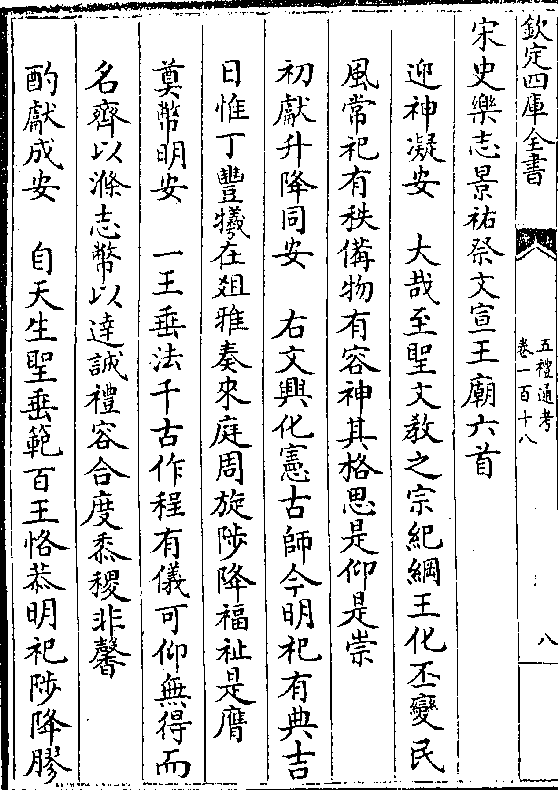 欽定四庫全書
五禮通考
卷一百十八
八
宋史樂志景祐祭文宣王廟六首
迎神凝安　大哉至聖文教之宗紀綱王化丕變民
風常祀有秩備物有容神其格思是仰是崇
初獻升降同安　右文興化憲古師今明祀有典吉
日惟丁豐犧在俎雅奏來庭周旋陟降福祉是膺
奠幣明安　一王垂法千古作程有儀可仰無得而
名齊以滌志幣以達誠禮容合度黍稷非馨
酌獻成安　自天生聖垂範百王恪恭明祀陟降膠